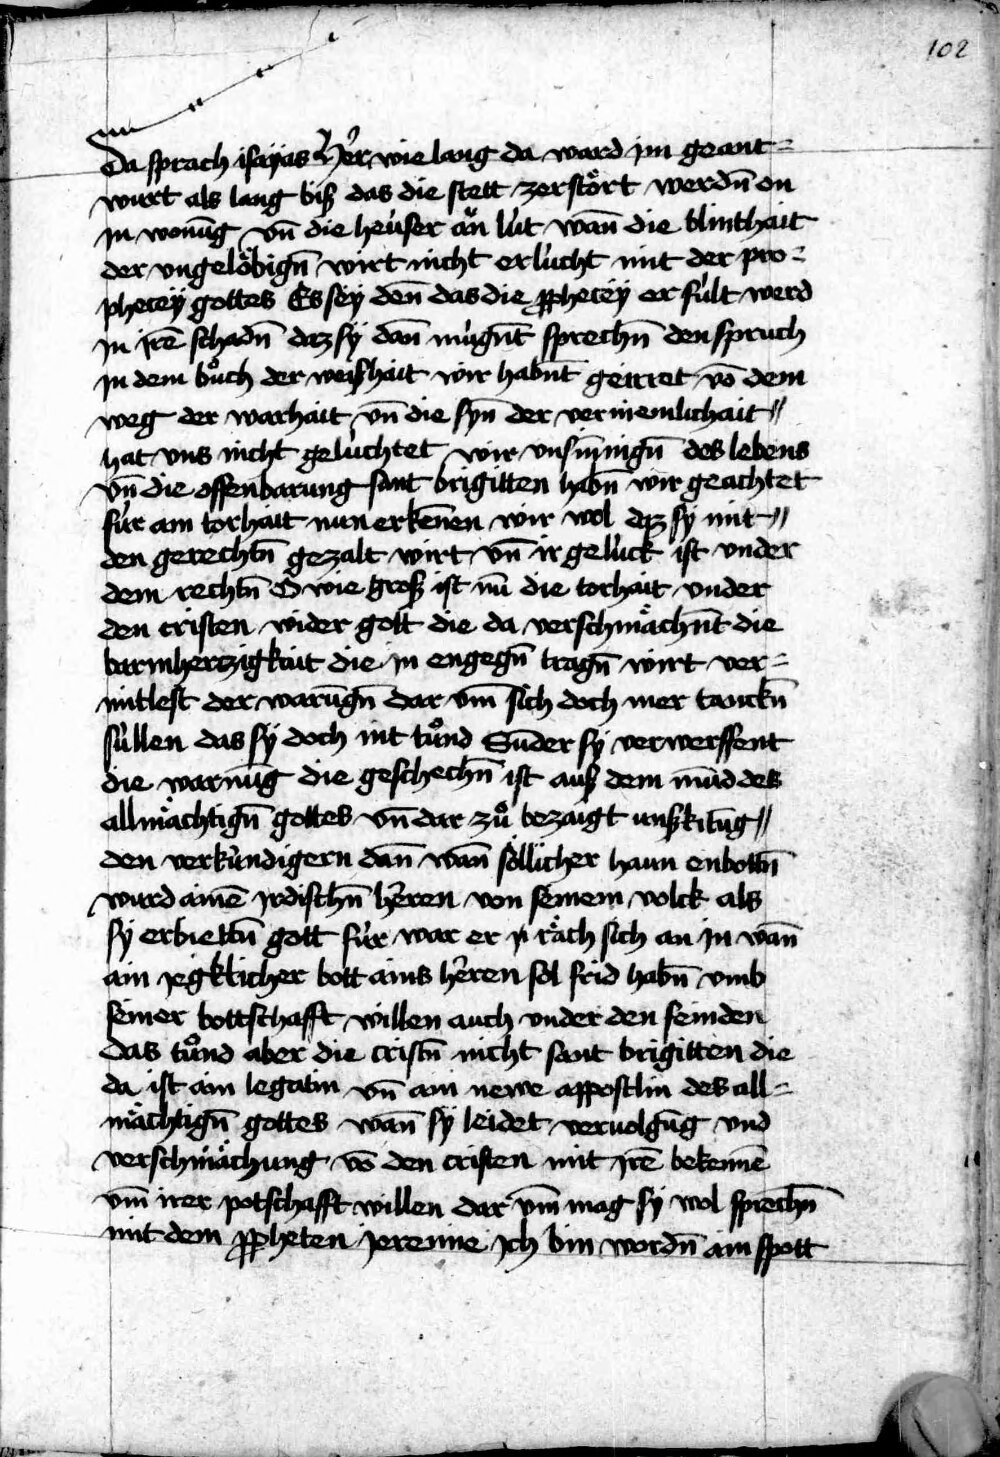 102
Da sprach isayas Her wie lang da ward im geant=
wurt als lang biß das die stett zerstört werdn̄ on
in wonūg vn̄ die heüser än lüt wan̄ die blinthait
der vngelöbign̄ wirt nicht erlücht mit der pro=
phecey gottes Es sey den̄ das die ꝓphecey er fült werd
in irē schadn̄ daz sy dan̄ mügn̄t sprechn̄ den spruch
in dem bůch der weishait wir habn̄t geirret vō dem
weg der warhait vn̄ die syn̄ der verniemlichait
hat vns nicht gelüchtet wir vnsīnign̄ des lebens
vn̄ die offenbarung sant brigitten habn̄ wir geachtet
für ain torhait nun erkenēn wir wol dz sy mit
den gerechtn̄ gezalt wirt vn̄ ir gelück ist vnder
dem rechtn̄ O wie groß ist nū die torhait vnder
den cristen wider gott die da verschmächn̄t die
barmhertzigkait die in engegn̄ tragn̄ wirt ver=
mitlest der warūgn̄ dar vm̄ sich doch mer danckn̄
süllen das sy doch nit tůnd Sūder sy verwerffent
die warnūg die geschechn̄ ist auß dem mūd des
allmächtign̄ gottes vn̄ dar zů bezaigt
den verkündigern dan̄ wan̄ söllicher haun enbottn̄
wurd aimē irdischn̄ heren von seinem volck als
sy erbiettn̄ gott für war er räch sich an in wan̄
ain iegklicher bott ains heren sol frid habn̄ vmb
seiner bottschafft willen auch vnder den feinden
das tůnd aber die cristn̄ nicht sant brigitten die
da ist ain legatin vn̄ ain newe appostlin des all=
mächtign̄ gottes wan̄ sy leidet veruolgūg vnd
verschmächung vō den cristen mit irē bekennē
vm̄ irer potschafft willen dar vm̄ mag sy wol sprechn̄
mit dem ꝓpheten ieremie ich bin wordn̄ ain spott